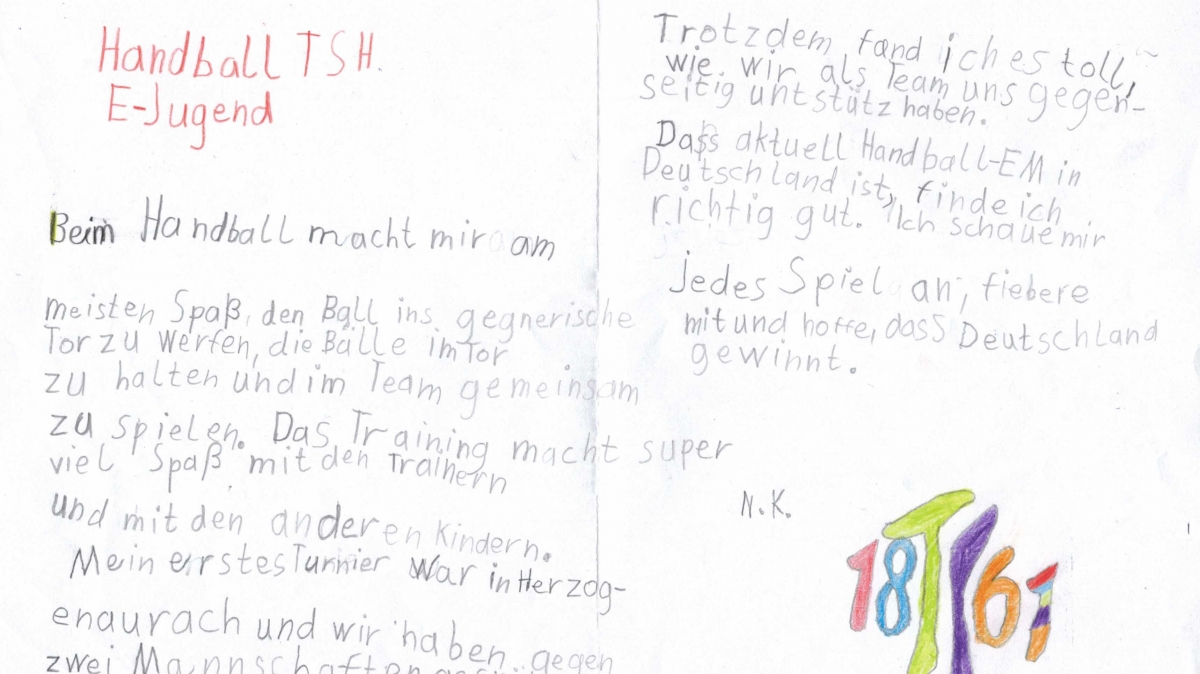 Handball TSH
E-Jugend
Beim Handball macht mir am
meisten Spaß, den Ball ins gegnerische
Tor zu werfen, die Bälle im Tor
zu halten und im Team gemeinsam
zu spielen. Das Training macht super
viel Spaß mit den Trainern
und mit den anderen Kindern.
Mein erstes Turnier war in Herzog-
enaurach und wir haben gegen
zwei Mannschaften
Trotzdem fand ich es toll,
wie wir als Team uns gegen-
seitig untstütz haben.
Dass aktuell Handball-EM in
Deutschland ist, finde ich
richtig gut. Ich schaue mir
jedes Spiel an, fiebere
mit und hoffe, dass Deutschland
gewinnt.
N.K.
18 61